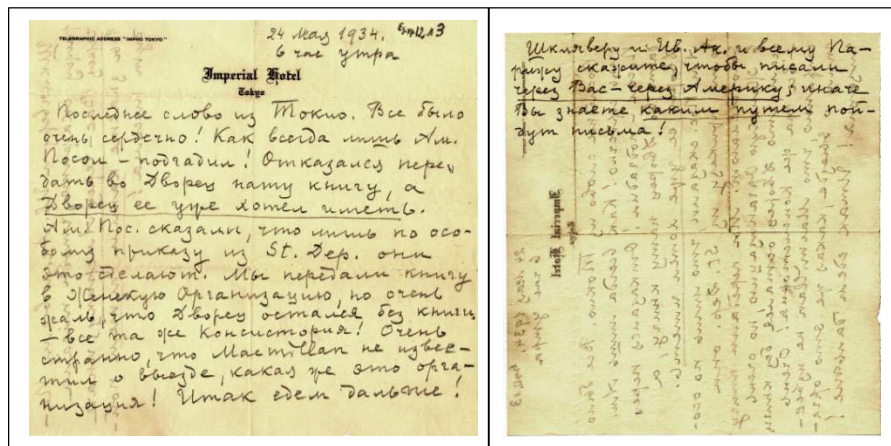 TELEGRAPHIC ADDRESS "IMPHO TOKYO"
24 Мая 1934.
6 час утра
Imperial Hotel
Tokyo
Последнее слово из Токио. Все было
очень сердечно! Как всегда лишь Ам.
Посол – подгадил! Отказался пере-
дать во Дворец нашу книгу, а
Дворец ее уже хотел иметь.
Ам. Пос. сказали, что лишь по осо-
бому приказу из St. Dep. они
это сделают. Мы передали книгу
в Женскую Организацию, но очень
жаль, что Дворец остался без книги
– все та же Консистория! Очень
странно, что Macmillan не извес-
тил о выезде, какая же это орга-
низация! Итак едем дальше!
Шкляверу и Ив. Ак. и всему Па-
рижу скажите, чтобы писали
через Вас – через Америку, иначе
Вы знаете каким путем пой-
дут письма!
Imperial Hotel
Tokyo